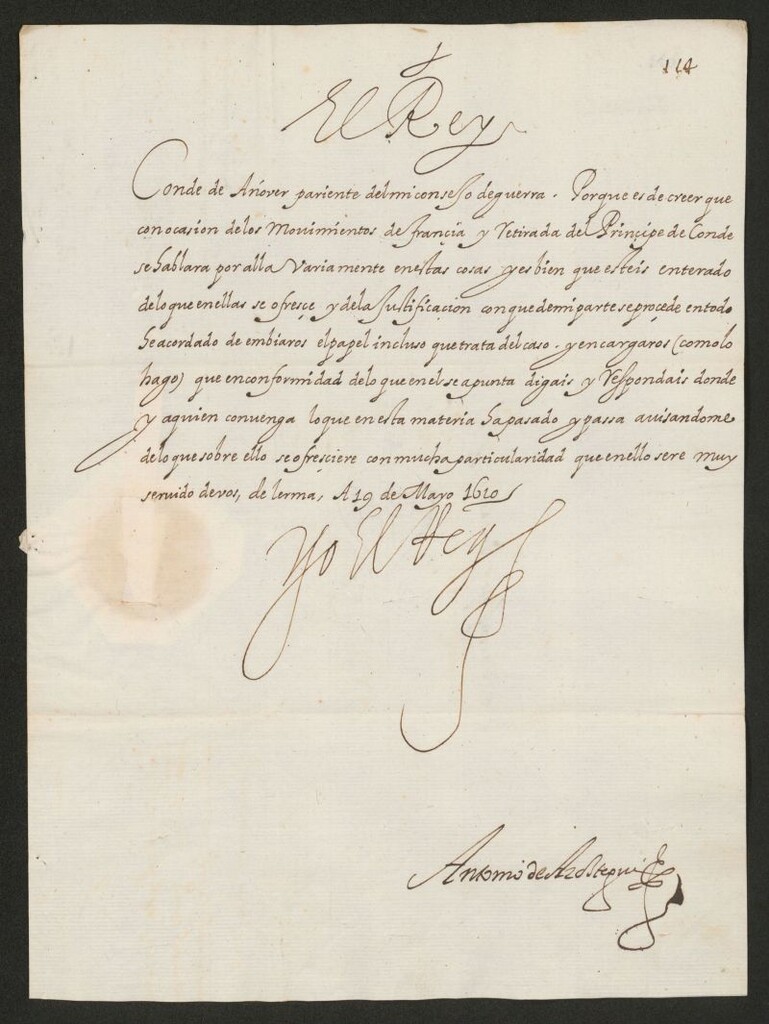 114
El Rey
Conde de Añover pariente del mi consejo de guerra. Porque es de creer que
con ocasion de los Movimientos de francia y Retirada del Principe de Conde
se hablara por alla Variamente en estas cosas y es bien que esteis enterado
de lo que en ellas se ofresçe y de la Justificaçion con que de mi parte se proçede en todo
he acordado de embiaros el papel incluso que trata del caso. y encargaros (como lo
hago) que en conformidad de lo que en el se apunta digais y Respondais donde
y a quien convenga lo que en esta materia ha pasado y passa avisandome
de lo que sobre ello se ofresçiere con mucha particularidad que en ello sere muy
servido de vos, de lerma, A 19 de Mayo 1610
Yo El Rey
Antonio de Aroztegui